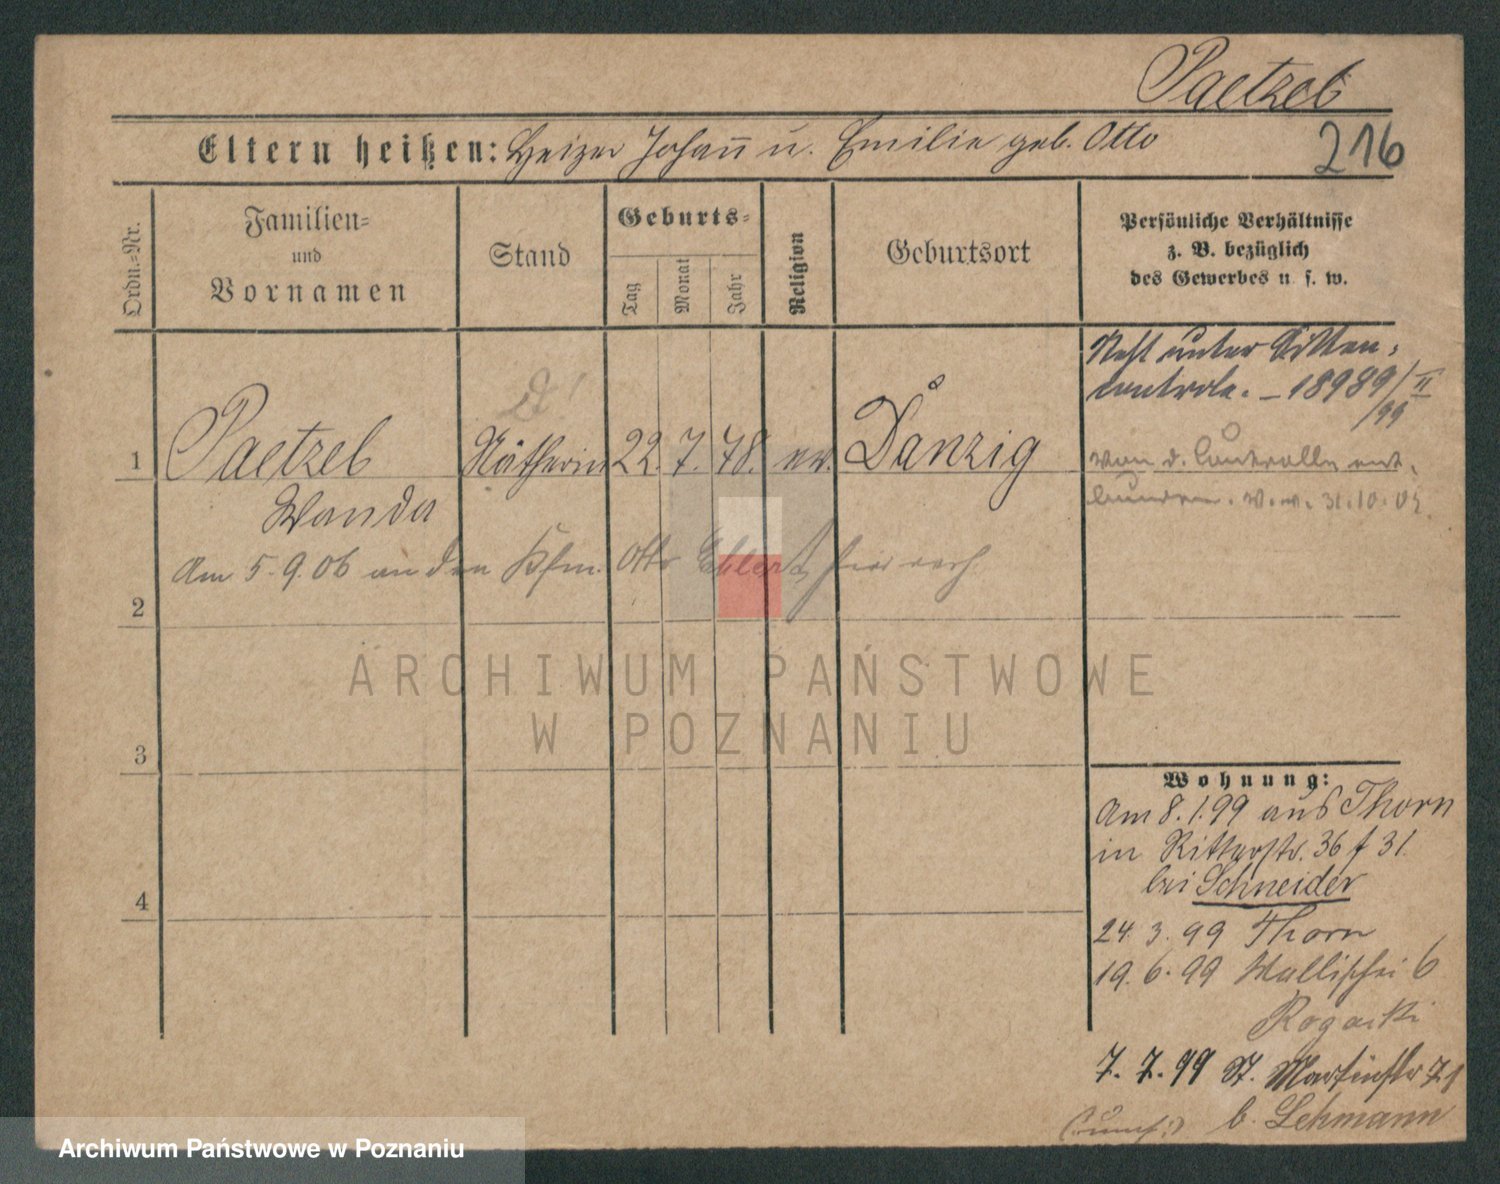 Paetzel
Eltern heißen: Heizer Johann u. Emilie geb. Otto
216
Ordn.=Nr.
Familien=
und
Vornamen
Stand
Geburts=
Tag
Monat
Jahr
Religion
Geburtsort
Persönliche Verhältnisse
z. B. bezüglich
des Gewerbes u. s. w.
Steht unter Sitten-
controle. - 18989/II
/99
von d. Controlle ent-
bunden. 31.10.05.
1 Paetzel Nätherin 22. 7. 78. ev. Danzig
Wanda
Am 5.9.06 an den Kfm. Otto Ehlert hier verh
2
3
4
Wohnung:
Am 8.1.99 aus Thorn
in Ritterstr. 36 f 31.
bei Schneider
24. 3. 99 Thorn
19. 6. 99 Wallischei 6
Rogacki
7. 7. 99 St. Martinstr 71
b. Lehmann
ARCHIWUM PAŃSTWOWE
W POZNANIU
Archiwum Państwowe w Poznaniu